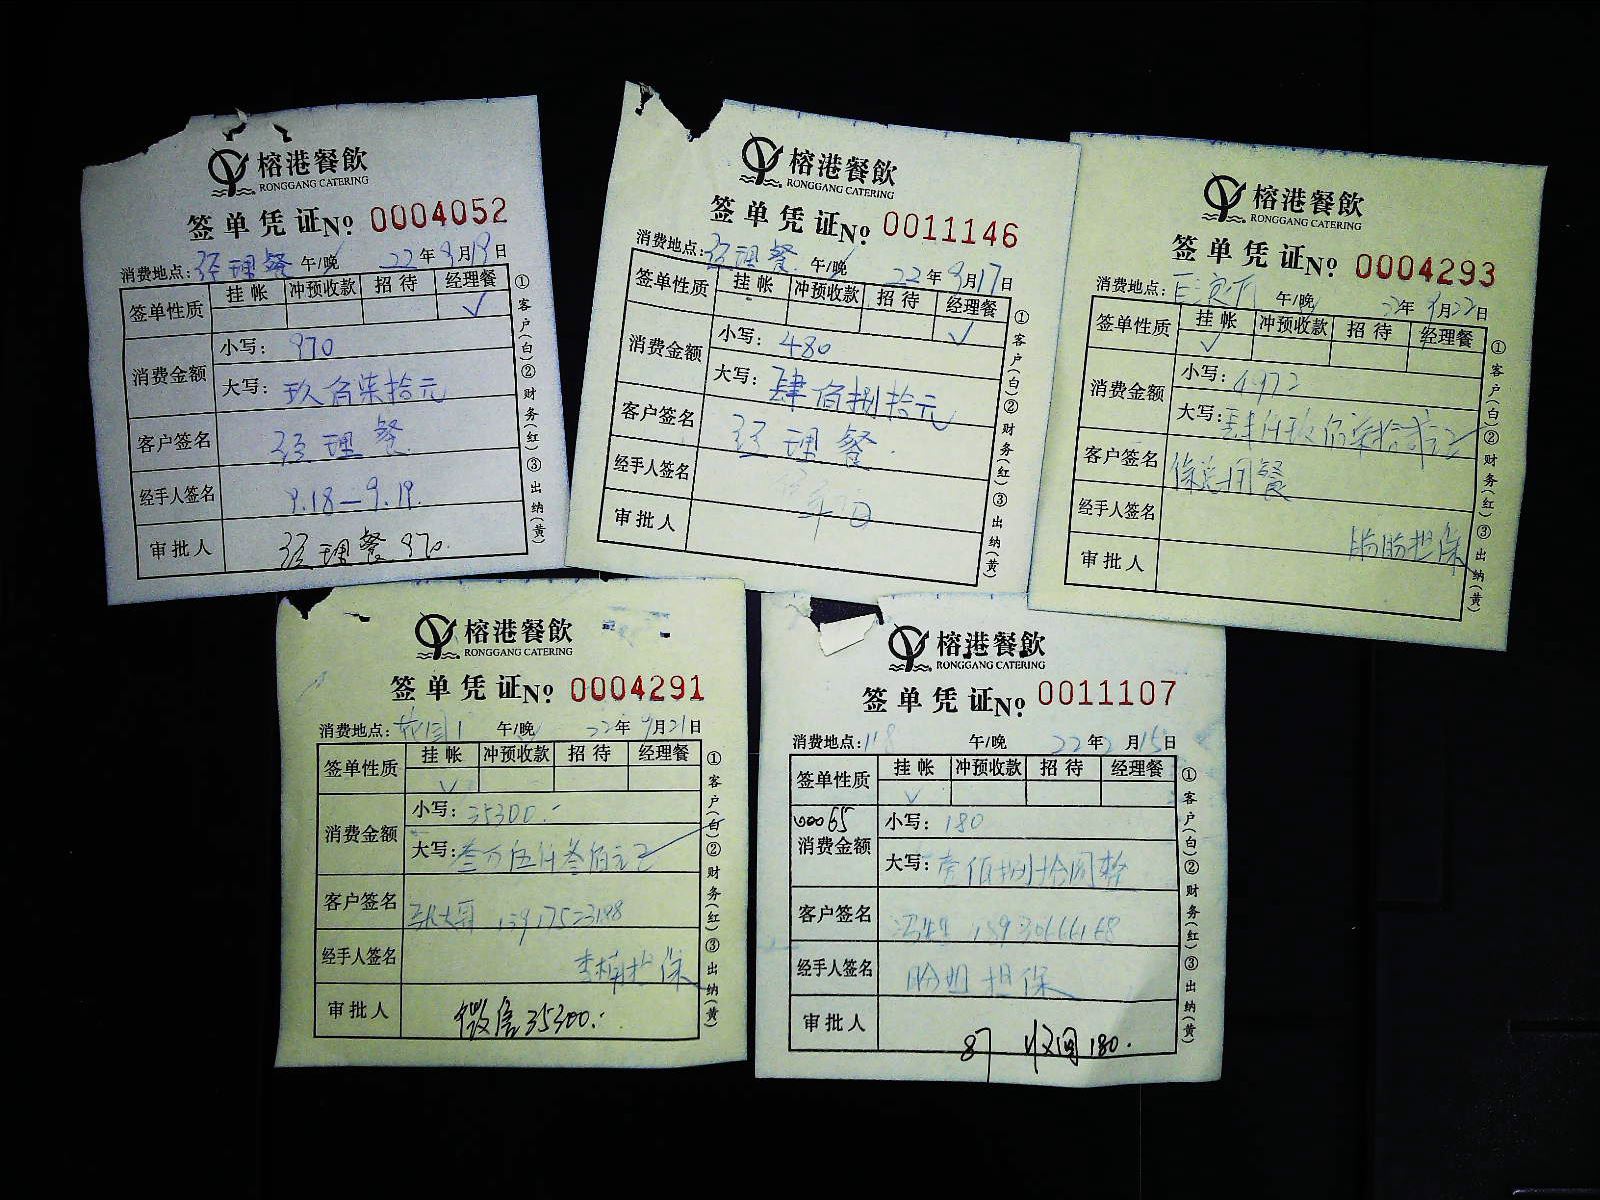 榕港餐飲
RONGGANG CATERING
签单凭证No 0004052
消费地点: 经理餐 午/晚 22年9月19日
签单性质 挂帐 冲预收款 招待 经理餐
✓
消费金额 小写: 970
大写: 玖佰柒拾元
客户签名 经理餐
经手人签名 9.18—9.19.
审批人 经理餐 970.
①客户(白)②财务(红)③出纳(黄)
榕港餐飲
RONGGANG CATERING
签单凭证No 0011146
消费地点: 经理餐 午/晚 22年9月17日
签单性质 挂帐 冲预收款 招待 经理餐
✓
消费金额 小写: 480
大写: 肆佰捌拾元
客户签名 经理餐.
经手人签名
审批人
①客户(白)②财务(红)③出纳(黄)
榕港餐飲
RONGGANG CATERING
签单凭证No 0004293
消费地点: 午/晚 22年9月22日
签单性质 挂帐 冲预收款 招待 经理餐
✓
消费金额 小写: 4972
大写: 肆仟玖佰柒拾贰元
客户签名 徐总用餐
经手人签名 担保
审批人
①客户(白)②财务(红)③出纳(黄)
榕港餐飲
RONGGANG CATERING
签单凭证No 0004291
消费地点: 午/晚 22年9月21日
签单性质 挂帐 冲预收款 招待 经理餐
✓
消费金额 小写: 35300.-
大写: 叁万伍仟叁佰元正
客户签名 13917523188
经手人签名 李楠担保
审批人 微信35300.-
①客户(白)②财务(红)③出纳(黄)
榕港餐飲
RONGGANG CATERING
签单凭证No 0011107
消费地点: 118 午/晚 22年2月15日
签单性质 挂帐 冲预收款 招待 经理餐
✓
00065
消费金额 小写: 180
大写: 壹佰捌拾圆整
客户签名 15930666168
经手人签名 盼姐担保
审批人 87 收回180.
①客户(白)②财务(红)③出纳(黄)